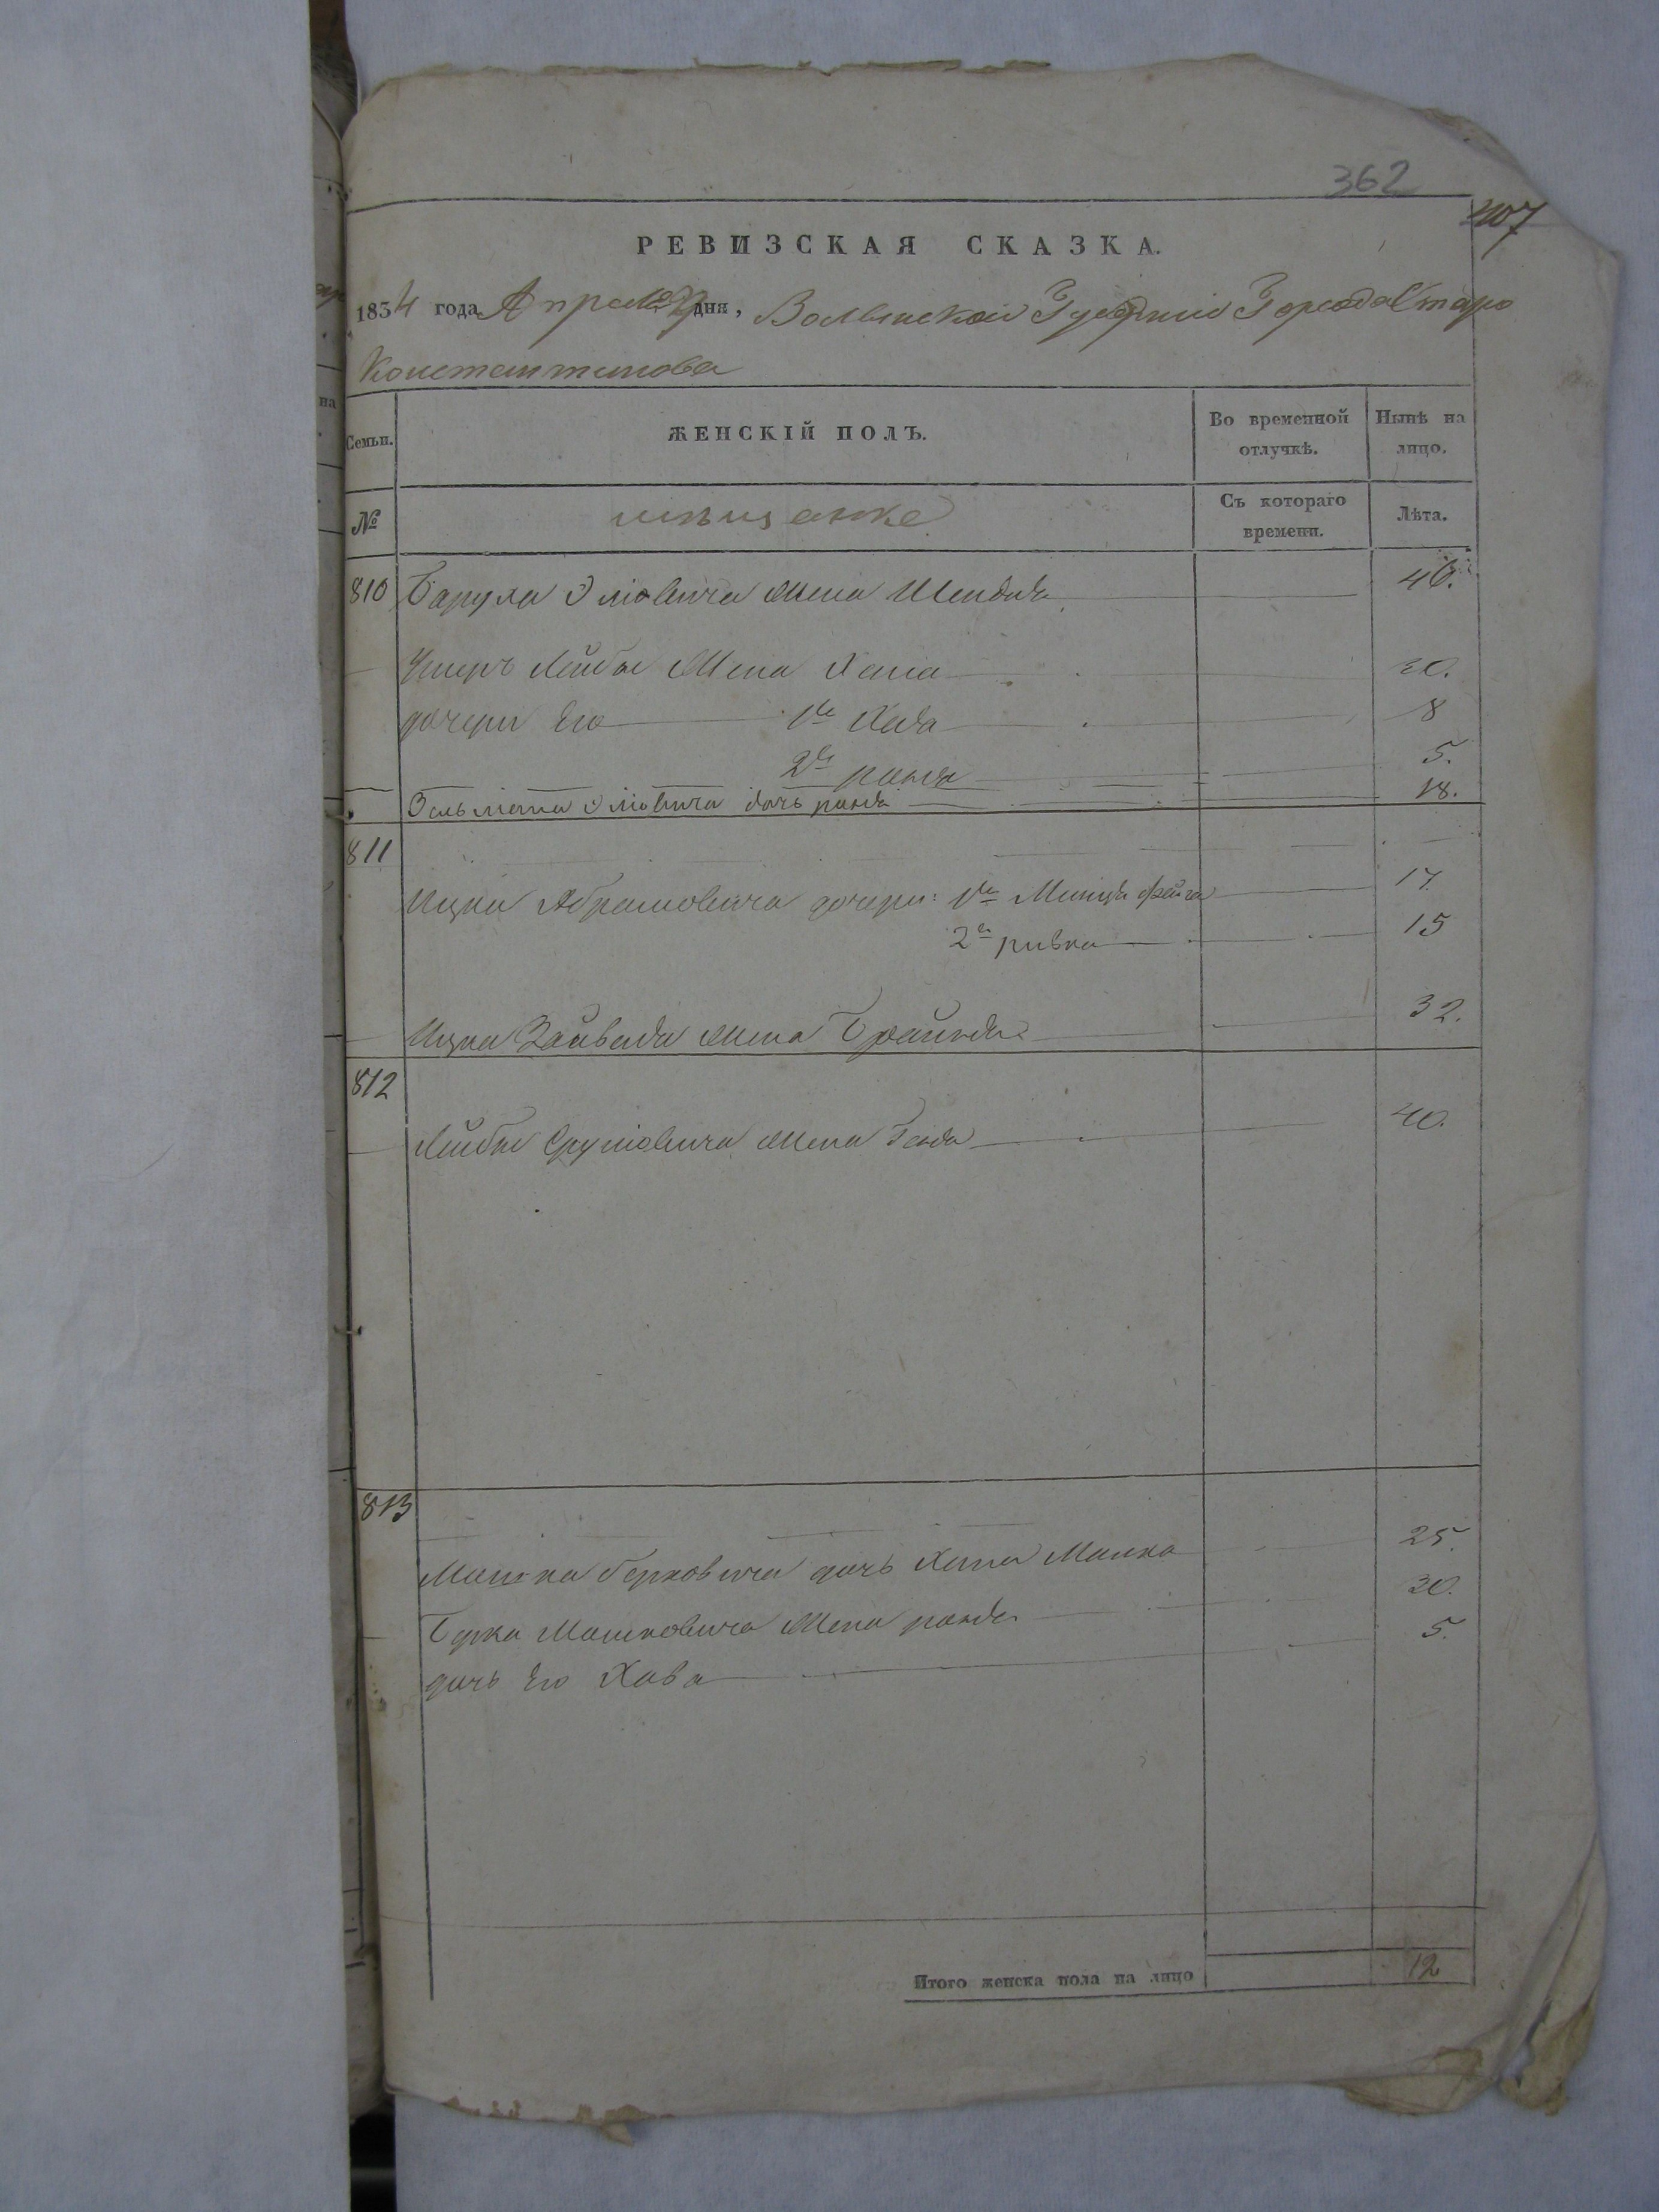 362
407
РЕВИЗСКАЯ СКАЗКА.
1834 года Апреля дня, Волынской Губернии Города Старо
Константинова
Семьи.
ЖЕНСКІЙ ПОЛЪ.
Во временной отлучкѣ.
Нынѣ на лицо.
№
мѣщанке
Съ котораго времени.
Лѣта.
810 Баруха Элiовича жена Шендля 46.
Лейбы жена Хана 20.
дочери Его 1я Хая 8
2я рания 5.
Зельмана Элiовича дочь 18.
811
Ицки Абрамовича дочери: 1я Минця Фейга 17.
2я ривка 15
Ицка Зайвеля жена Брайндля 32.
812
Лейбы Сруліовича жена Генда 40.
813
Мошка Берковича дочь Хана Малка 25.
Берка Мошковича жена 30.
дочь Его Хава 5.
Итого женска пола на лицо 12